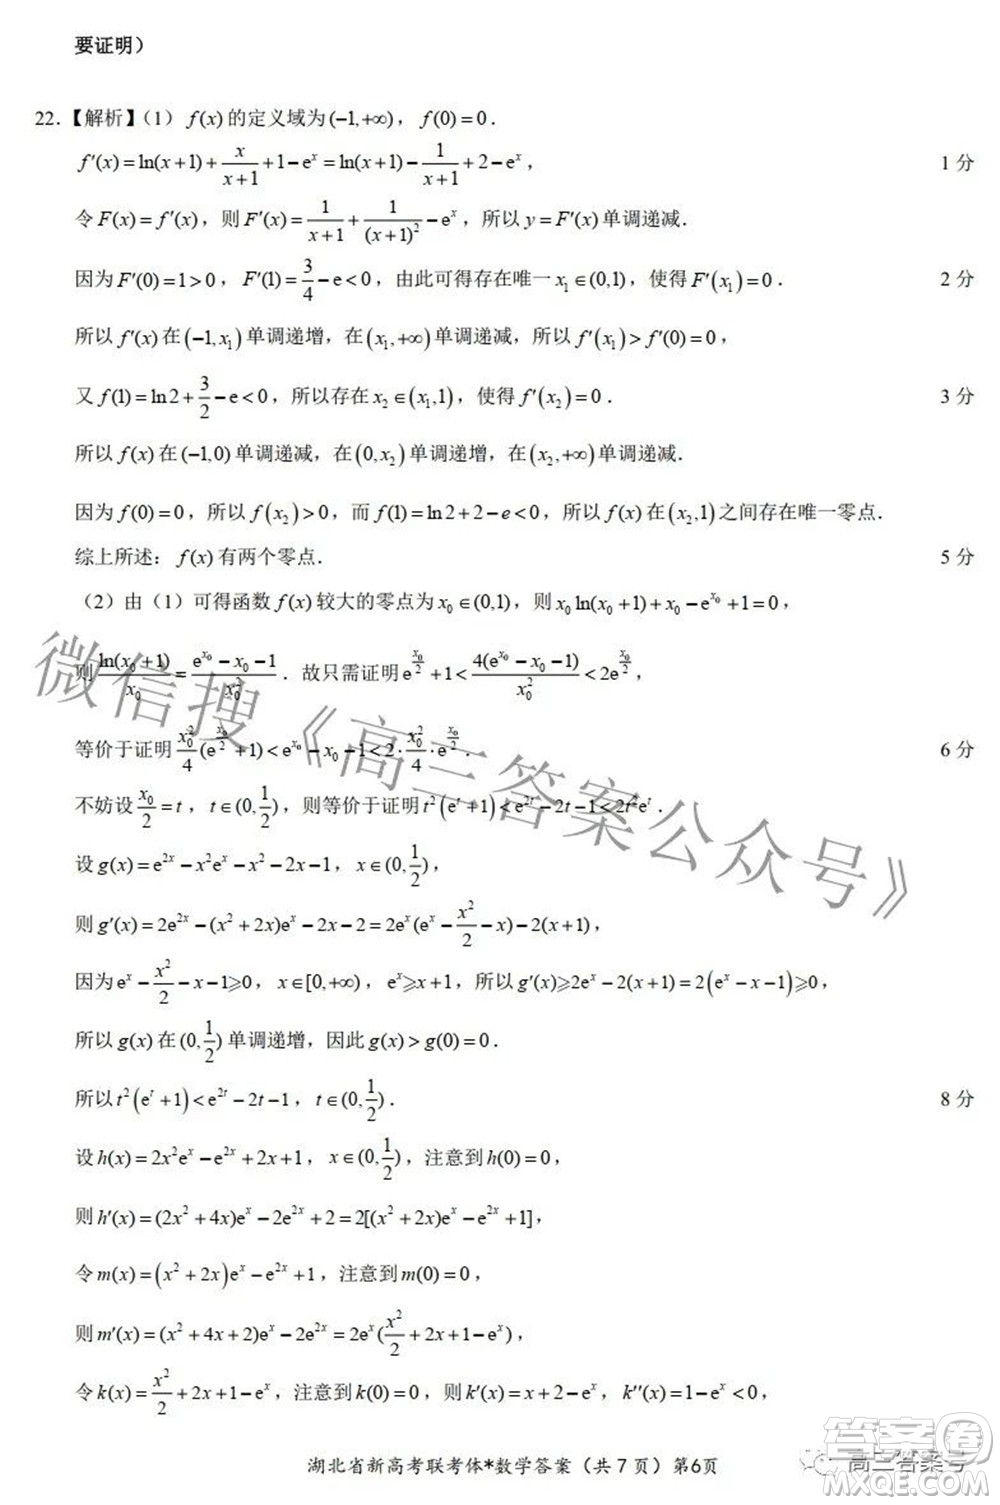 要证明）
22.【解析】（1） f(x) 的定义域为 (−1,+∞)， f(0)=0．
f′(x)=ln(x+1)+x/(x+1)+1−e^x=ln(x+1)−1/(x+1)+2−e^x， 1 分
令 F(x)=f′(x)，则 F′(x)=1/(x+1)+1/(x+1)²−e^x，所以 y=F′(x) 单调递减．
因为 F′(0)=1>0， F′(1)=3/4−e<0，由此可得存在唯一 x₁∈(0,1)，使得 F′(x₁)=0． 2 分
所以 f′(x) 在 (−1,x₁) 单调递增，在 (x₁,+∞) 单调递减，所以 f′(x₁)>f′(0)=0，
又 f(1)=ln2+3/2−e<0，所以存在 x₂∈(x₁,1)，使得 f′(x₂)=0． 3 分
所以 f(x) 在 (−1,0) 单调递减，在 (0,x₂) 单调递增，在 (x₂,+∞) 单调递减．
因为 f(0)=0，所以 f(x₂)>0，而 f(1)=ln2+2−e<0，所以 f(x) 在 (x₂,1) 之间存在唯一零点．
综上所述： f(x) 有两个零点． 5 分
（2）由（1）可得函数 f(x) 较大的零点为 x₀∈(0,1)，则 x₀ln(x₀+1)+x₀−e^(x₀)+1=0，
则 ln(x₀+1)/x₀=(e^(x₀)−x₀−1)/x₀²．故只需证明 e^(x₀/2)+1<4(e^(x₀)−x₀−1)/x₀²<2e^(x₀/2)，
等价于证明 x₀²/4(e^(x₀/2)+1)<e^(x₀)−x₀−1<2·x₀²/4·e^(x₀/2)． 6 分
不妨设 x₀/2=t， t∈(0,1/2)，则等价于证明 t²(e^t+1)<e^(2t)−2t−1<2t²e^t．
设 g(x)=e^(2x)−x²e^x−x²−2x−1， x∈(0,1/2)，
则 g′(x)=2e^(2x)−(x²+2x)e^x−2x−2=2e^x(e^x−x²/2−x)−2(x+1)，
因为 e^x−x²/2−x−1⩾0， x∈[0,+∞)， e^x⩾x+1，所以 g′(x)⩾2e^x−2(x+1)=2(e^x−x−1)⩾0，
所以 g(x) 在 (0,1/2) 单调递增，因此 g(x)>g(0)=0．
所以 t²(e^t+1)<e^(2t)−2t−1， t∈(0,1/2)． 8 分
设 h(x)=2x²e^x−e^(2x)+2x+1， x∈(0,1/2)，注意到 h(0)=0，
则 h′(x)=(2x²+4x)e^x−2e^(2x)+2=2[(x²+2x)e^x−e^(2x)+1]，
令 m(x)=(x²+2x)e^x−e^(2x)+1，注意到 m(0)=0，
则 m′(x)=(x²+4x+2)e^x−2e^(2x)=2e^x(x²/2+2x+1−e^x)，
令 k(x)=x²/2+2x+1−e^x，注意到 k(0)=0，则 k′(x)=x+2−e^x， k″(x)=1−e^x<0，
湖北省新高考联考体*数学答案（共 7 页）第6页
微信搜《高三答案公众号》
高三答案号
答案圈
MXQE.COM